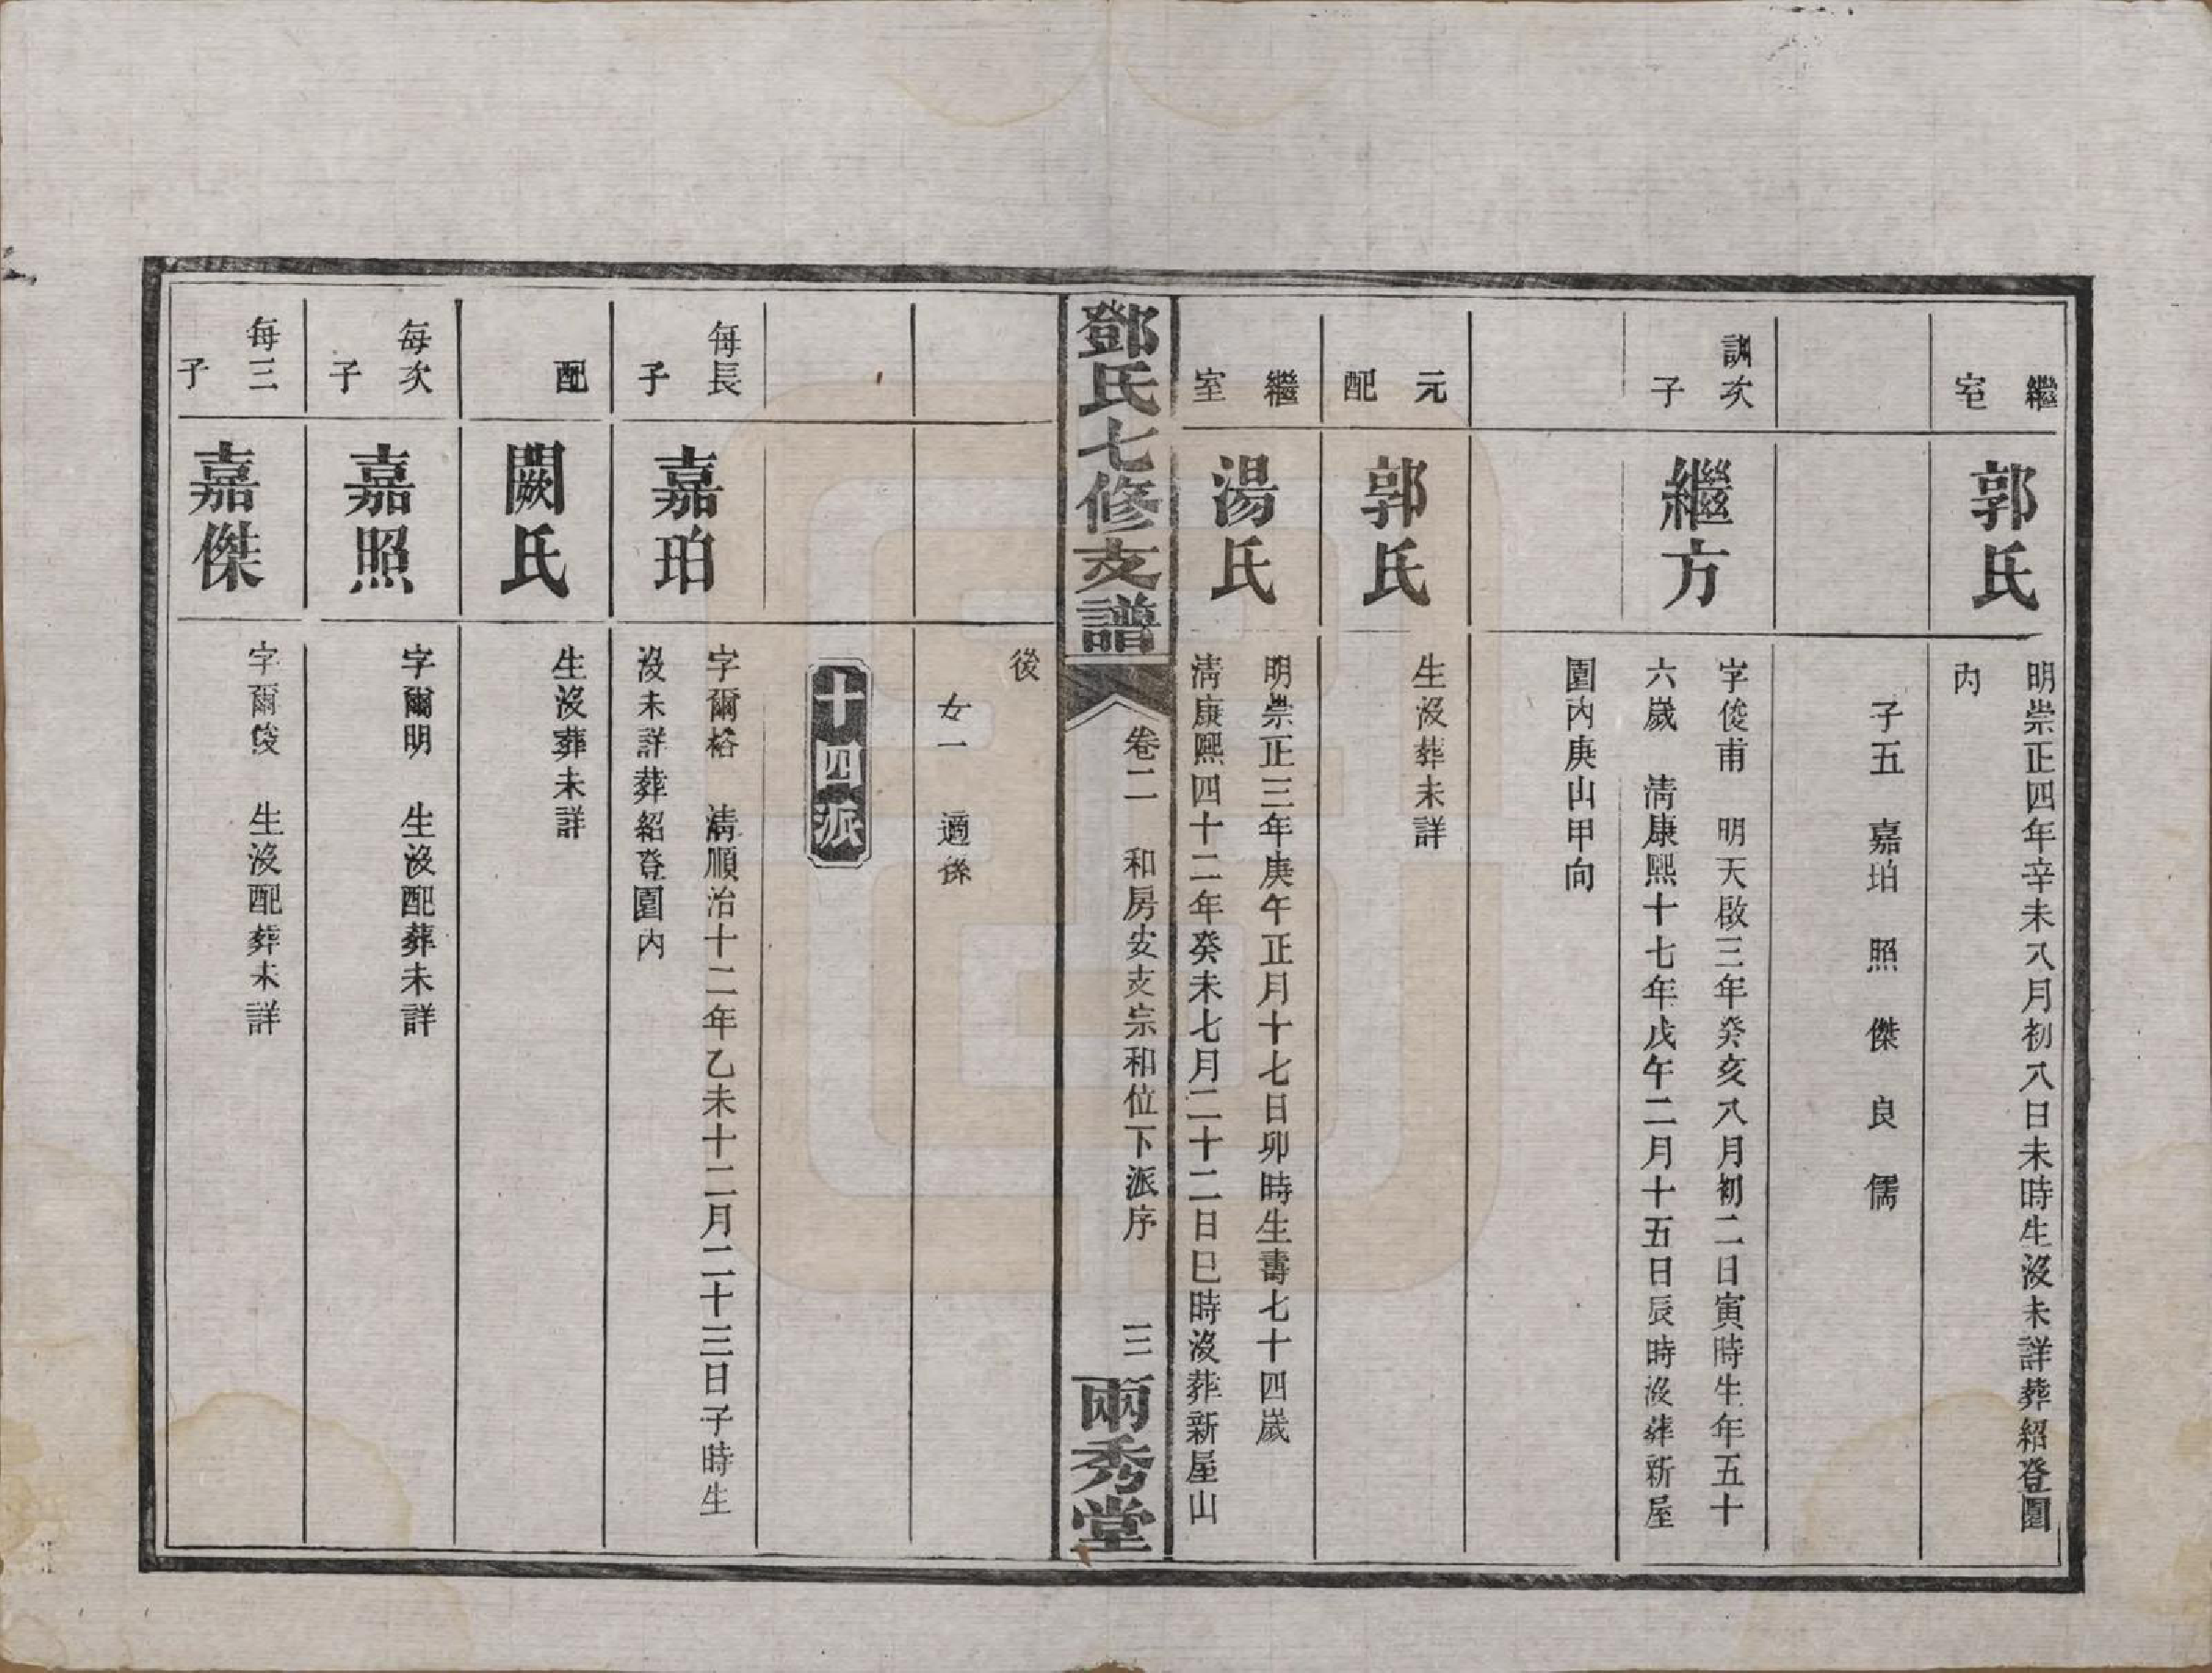 繼室
郭氏
明崇正四年辛未八月初八日未時生沒未詳葬紹登園
內
子五 嘉珀 照 傑 良 儒
訓次子
繼方
字俊甫 明天啟三年癸亥八月初二日寅時生年五十
六歲 清康熙十七年戊午二月十五日辰時沒葬新屋
園內庚山甲向
元配
郭氏
生沒葬未詳
繼室
湯氏
明崇正三年庚午正月十七日卯時生壽七十四歲
清康熙四十二年癸未七月二十二日巳時沒葬新屋山
鄧氏七修支譜
卷二 和房安支宗和位下派序 三
兩秀堂
後
女一 適孫
十四派
每長子
嘉珀
字爾格 清順治十二年乙未十二月二十三日子時生
沒未詳葬紹登園內
配
闕氏
生沒葬未詳
每次子
嘉照
字爾明 生沒配葬未詳
每三子
嘉傑
字爾俊 生沒配葬未詳